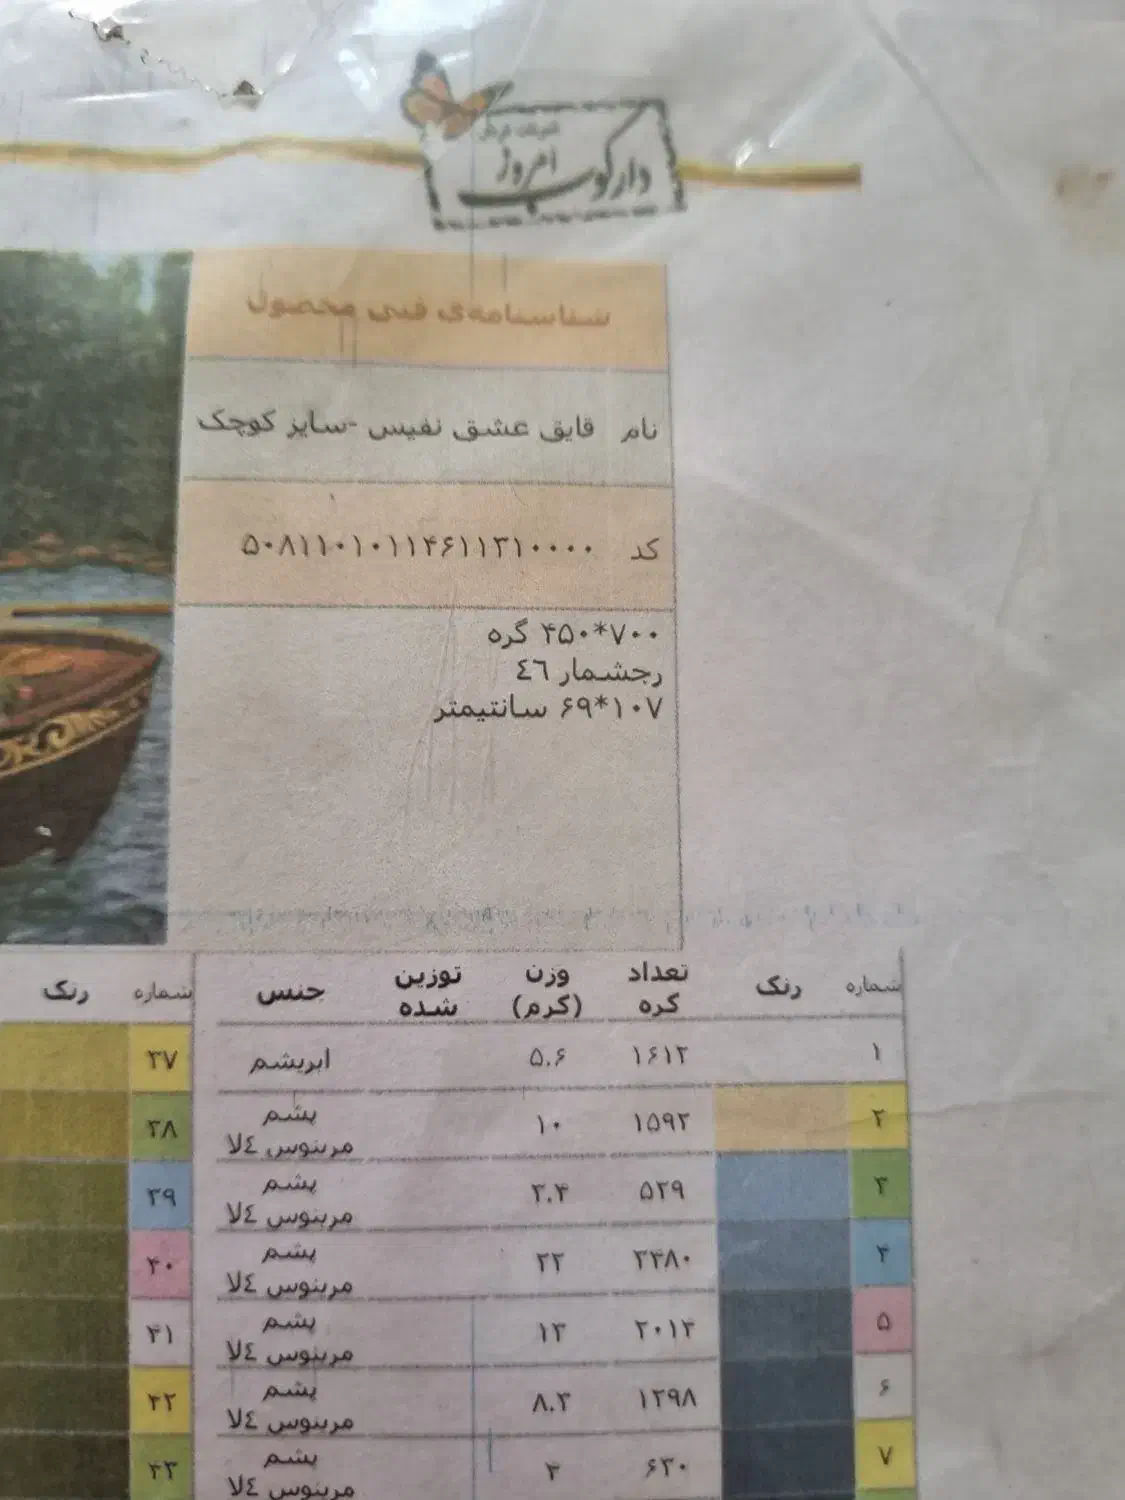 دارکوب امروز
شناسنامه‌ی فنی محصول
نام قایق عشق نفیس -سایز کوچک
کد ۵۰۸۱۱۰۱۰۱۱۴۶۱۱۳۱۰۰۰۰
۷۰۰*۴۵۰ گره
رجشمار ٤٦
۱۰۷*۶۹ سانتیمتر
شماره رنگ تعداد گره وزن (گرم) توزین شده جنس شماره رنگ
۱ ۱۶۱۲ ۵.۶ ابریشم ۳۷
۲ ۱۵۹۲ ۱۰ پشم مرینوس ٤لا ۳۸
۳ ۵۲۹ ۳.۴ پشم مرینوس ٤لا ۳۹
۴ ۳۴۸۰ ۲۲ پشم مرینوس ٤لا ۴۰
۵ ۲۰۱۲ ۱۳ پشم مرینوس ٤لا ۴۱
۶ ۱۲۹۸ ۸.۳ پشم مرینوس ٤لا ۴۲
۷ ۶۳۰ ۴ پشم مرینوس ٤لا ۴۳